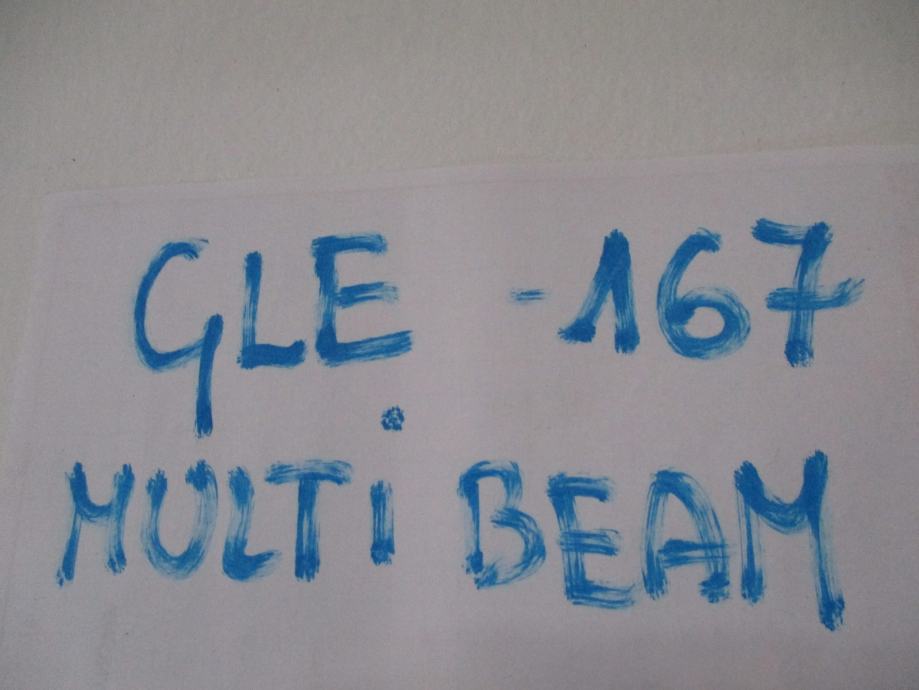 GLE -167
MULTi BEAM